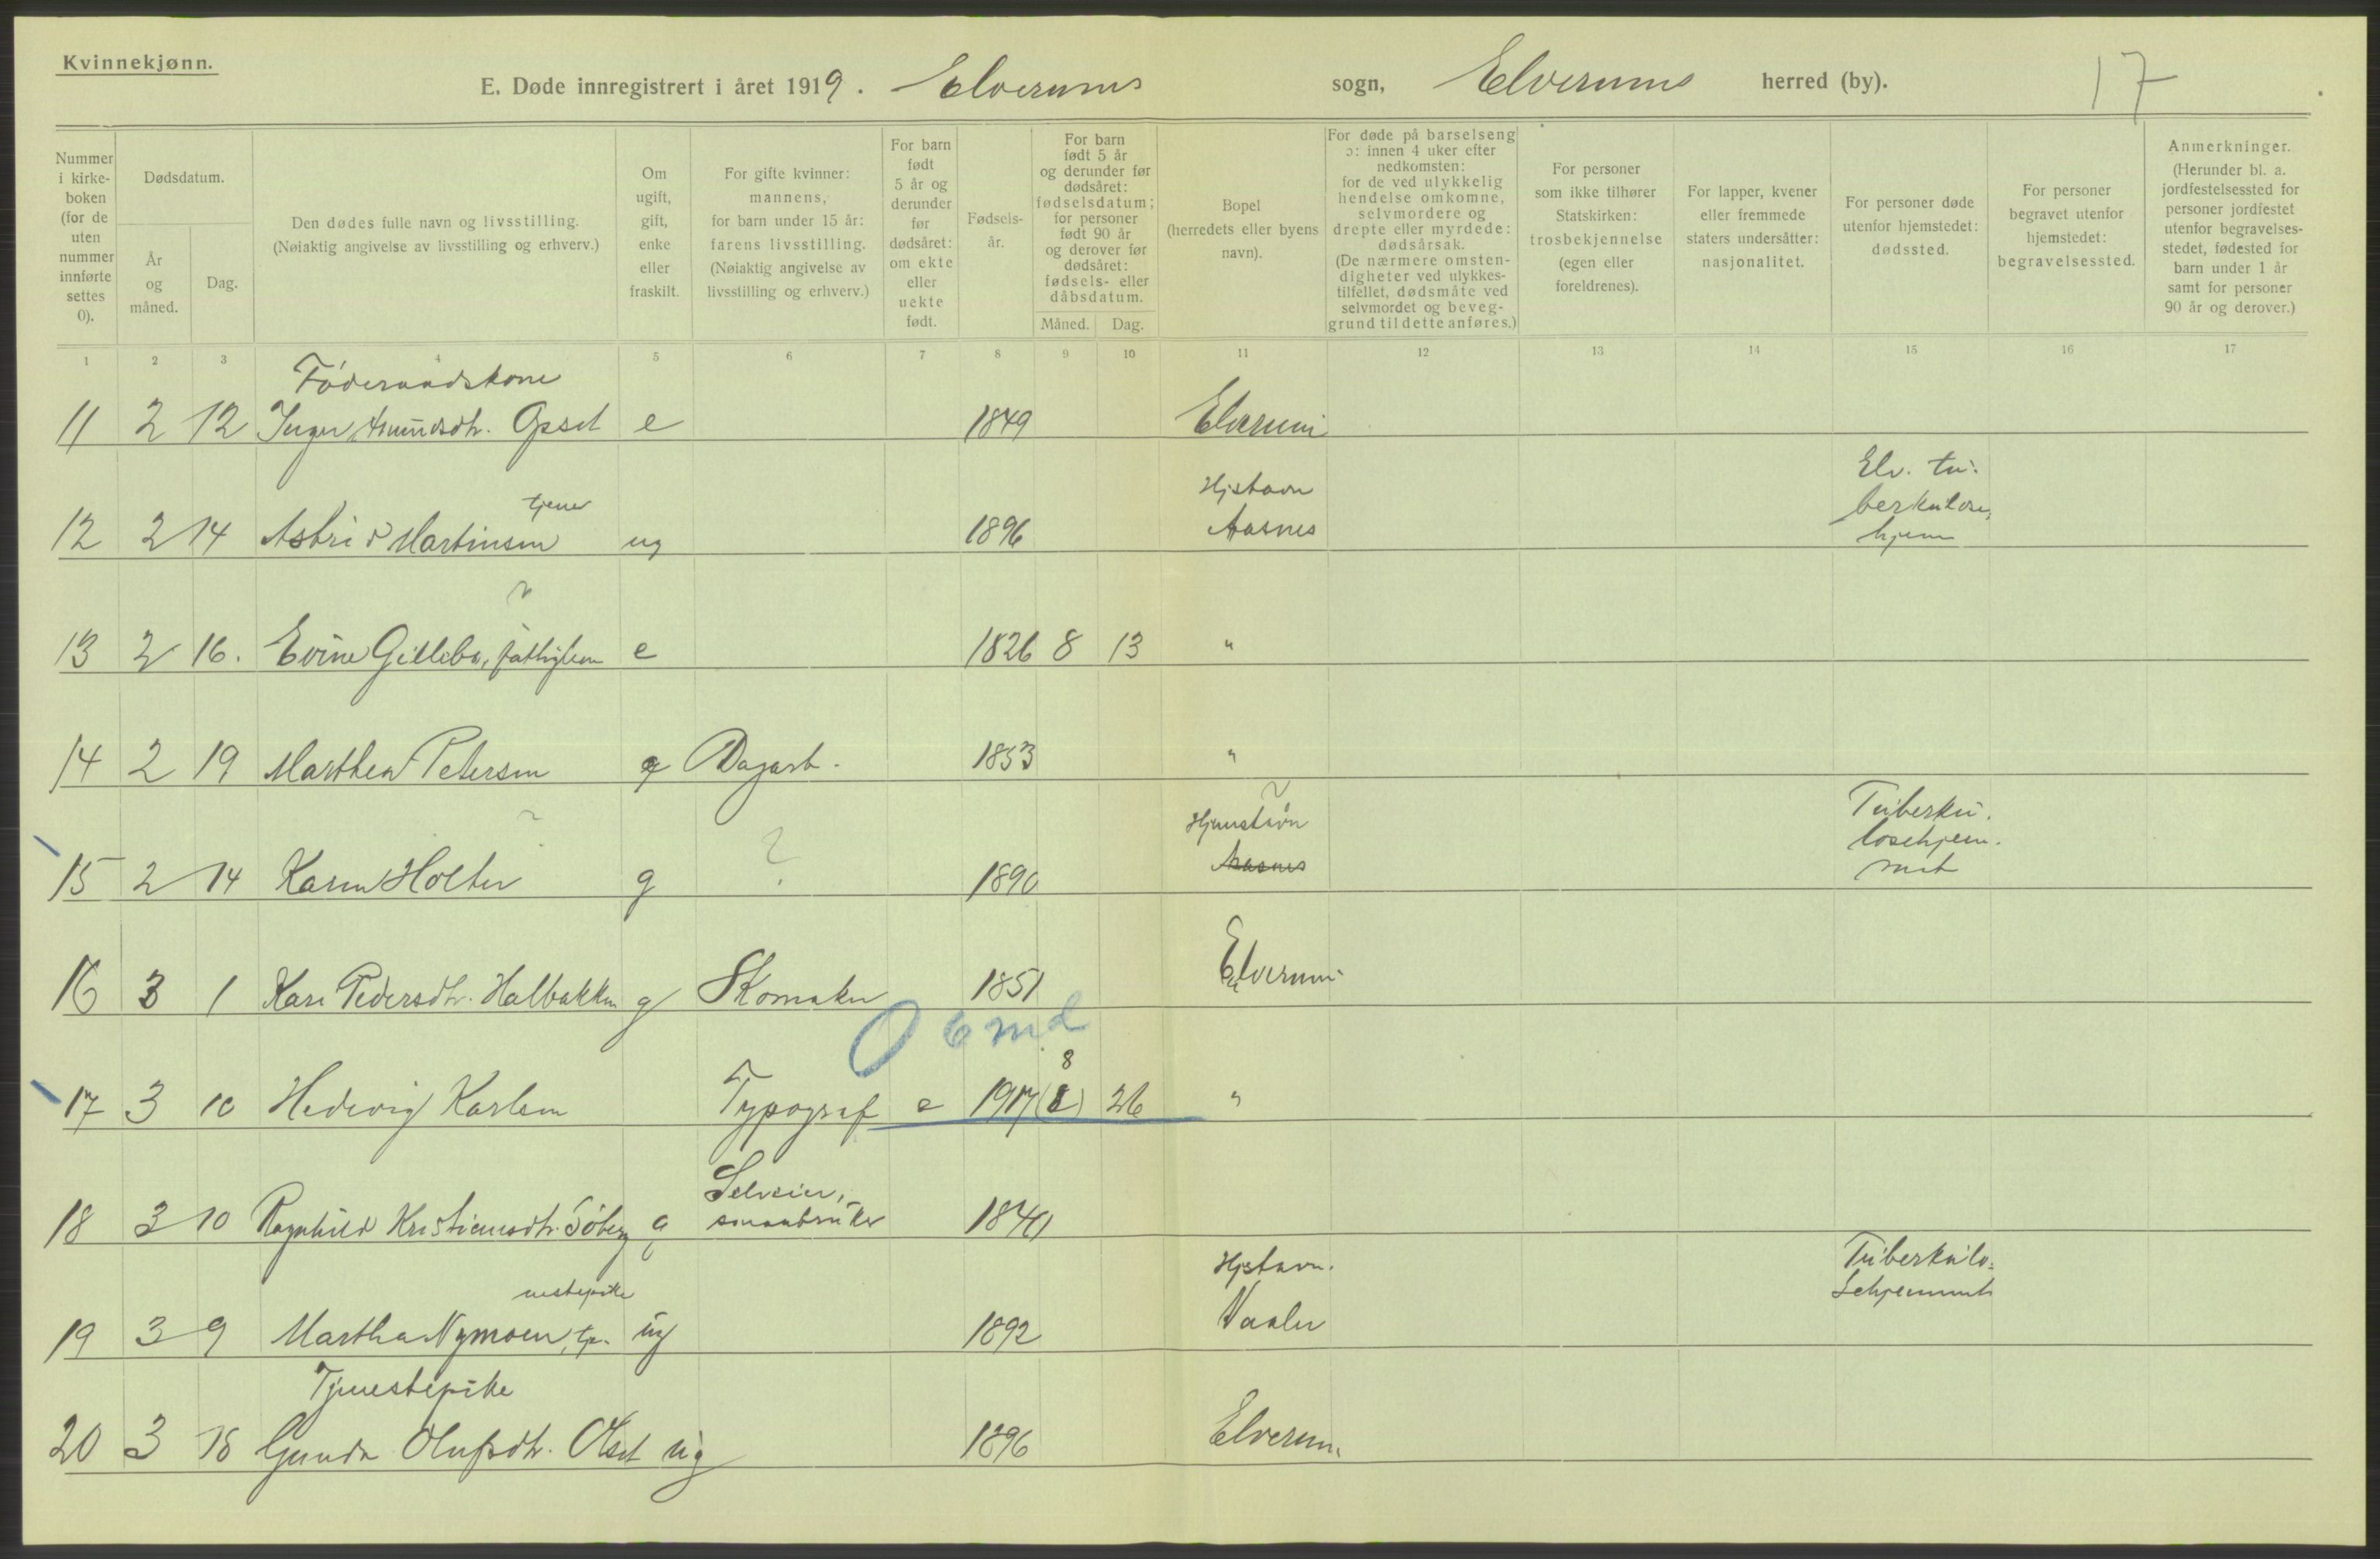 Kvinnekjønn.
E. Døde innregistrert i året 1919. Elverums sogn, Elverums herred (by). 17
Nummer i kirke-boken (for de uten nummer innførte settes 0).
Dødsdatum.
År og måned.
Dag.
Den dødes fulle navn og livsstilling.
(Nøiaktig angivelse av livsstilling og erhverv.)
Om ugift, gift, enke eller fraskilt.
For gifte kvinner: mannens, for barn under 15 år: farens livsstilling. (Nøiaktig angivelse av livsstilling og erhverv.)
For barn født 5 år og derunder før dødsåret: om ekte eller uekte født.
Fødsels-år.
For barn født 5 år og derunder før dødsåret: fødselsdatum; for personer født 90 år og derover før dødsåret: fødsels- eller dåbsdatum.
Måned. Dag.
Bopel (herredets eller byens navn).
For døde på barselseng ɔ: innen 4 uker efter nedkomsten: for de ved ulykkelig hendelse omkomne, selvmordere og drepte eller myrdede: dødsårsak. (De nærmere omsten-digheter ved ulykkes-tilfellet, dødsmåte ved selvmordet og beveg-grund til dette anføres.)
For personer som ikke tilhører Statskirken: trosbekjennelse (egen eller foreldrenes).
For lapper, kvener eller fremmede staters undersåtter: nasjonalitet.
For personer døde utenfor hjemstedet: dødssted.
For personer begravet utenfor hjemstedet: begravelsessted.
Anmerkninger. (Herunder bl. a. jordfestelsessted for personer jordfestet utenfor begravelses-stedet, fødested for barn under 1 år samt for personer 90 år og derover.)
1 2 3 4 5 6 7 8 9 10 11 12 13 14 15 16 17
Føderaadskone
11 2 12 Inger Amundsdtr. Opset e 1849 Elverum
tjener Hjstavn Elv. tu-
12 2 14 Astrid Martinsen ug 1896 Aasnes berkulose
hjem
13 2 16. Evine Gillebo, fattiglem e 1826 8 13 "
14 2 19 Marthea Petersen g Dagarb. 1853 "
? Hjemstavn ? Tuberku-
15 2 14 Karen Holter g ? 1890 Aasnes losehjem-
met
16 3 1 Kari Pedersdtr. Halbakken g Skomaker 1851 Elverum
0 6 md
8
17 3 10 Hedevig Karlsen Typograf e 1917 (8) 26 "
Selveier,
18 3 10 Ragnhild Kristiansdtr. Søberg g smaabruker 1841
nestepike Hjstavn. Tuberkulo-
19 3 9 Martha Nymoen, tje- ug 1892 Vaaler sehjemmet
Tjenestepike
20 3 18 Gunda Olufsdtr. Olset ug 1896 Elverum